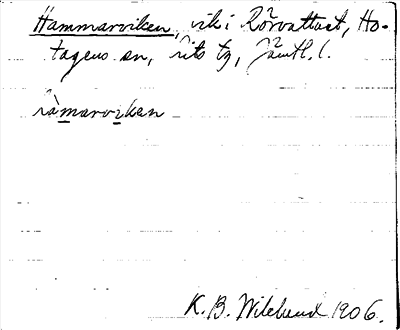 Hammarviken, vik i Rörvattnet, Ho-
tagens sn, Lits tg, Jämtl. l.
hàmarvıken
K. B. Wiklund 1906.